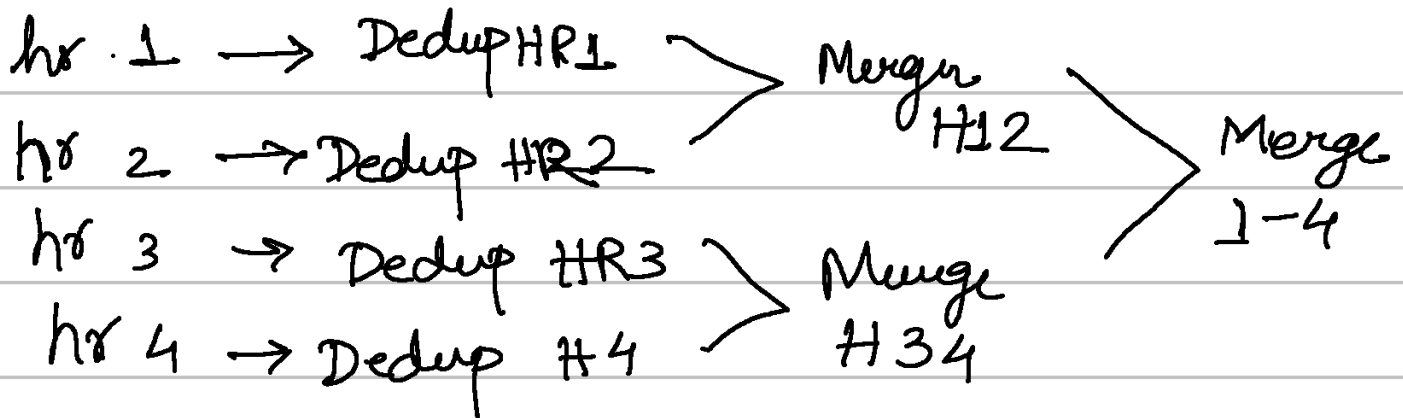 hr. 1 → Dedup HR1
hr 2 → Dedup HR2
hr 3 → Dedup HR3
hr 4 → Dedup H4
Merge
H12
Merge
H34
Merge
1-4